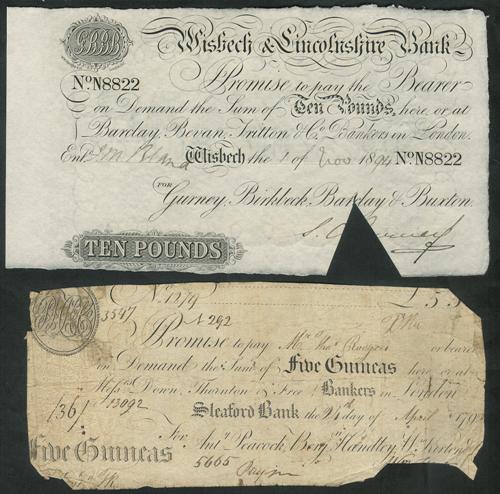 Wisbech & Lincolnshire Bank
No. N8822
Promise to pay the Bearer
on Demand the Sum of Ten Pounds, here or at
Barclay, Bevan, Tritton & Co. Bankers in London.
Entd. Wisbech the 1 of Nov 1894 No. N8822
FOR
Gurney, Birkbeck, Barclay & Buxton.
TEN POUNDS
No. 1279 £5.5
3547 N 292
Promise to pay Mr. Thos. or bearer
on Demand the Sum of Five Guineas here or at
Messrs. Down, Thornton & Free Bankers in London
136 13092
Sleaford Bank the 24th of April 179
For Ant. Peacock, Benj. Handley, Wm. Kirton
Five Guineas 5665